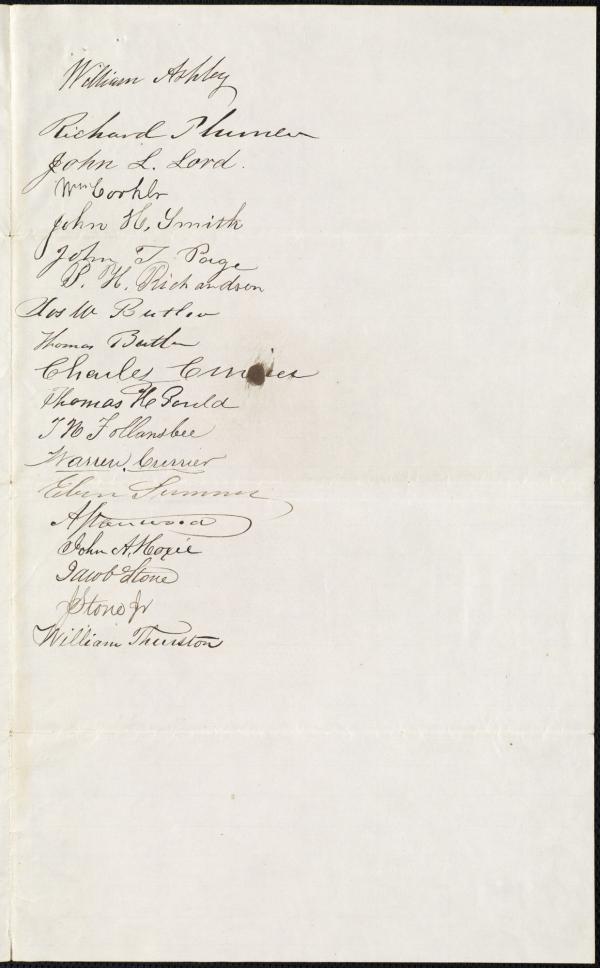 William Ashley
Richard Plumer
John L. Lord.
Wm
John H. Smith
John T. Page
P. H. Richardson
W Butler
Thomas Butler
Charles
Thomas H Gould
T N Follansbee
Warren. Currier
Eben Sumner
John A. Hoxie
Jacob Stone
J Stone Jr
William Thurston